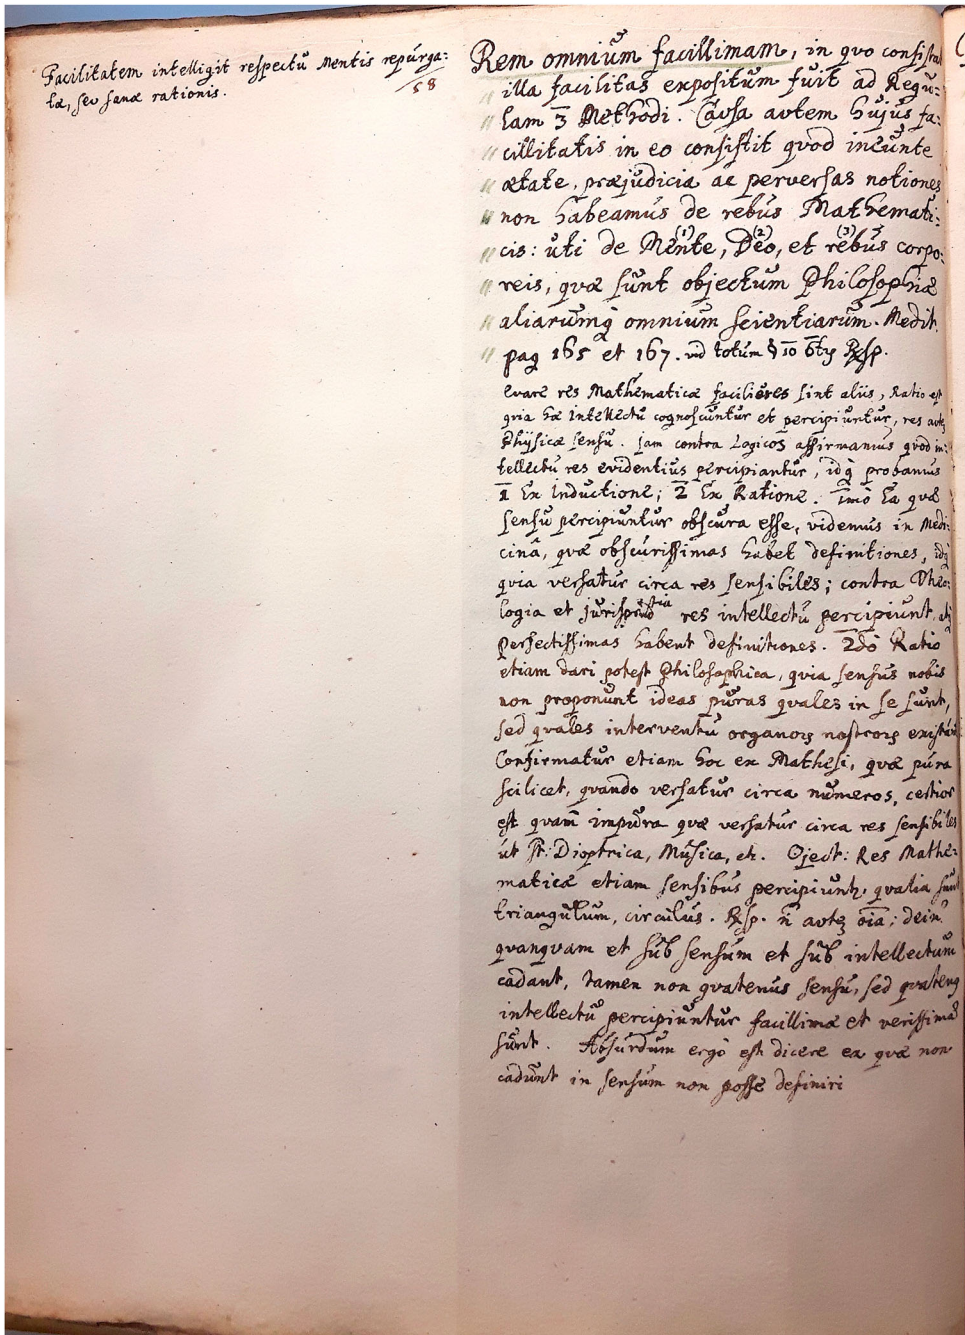 Facilitatem intelligit respectū Mentis repúrga:
tæ, seu sanæ rationis.
58
Rem omniūm facillimam, in qvo consistat
illa facilitas expositūm fūit ad Regū:
lam 3 Methodi. Caūsa aūtem hūjūs fa:
cilitatis in eo consistit qvod ineūnte
ætate, præjūdicia ac perversas notiones
non habeamūs de rebūs Mathemati:
cis: ūti de Mente, (1) Deo, (2) et rebūs (3) corpo:
reis, qvæ sūnt objectūm Philosophiæ
aliarūmq̀ omniūm scientiarūm. Medit.
pag 165 et 167. vid totūm § 10 6tæ Rsp.
cvare res Mathematicæ faciliores sint aliis, Ratio est
qvia hæ Intellectū cognoscūntūr et percipiūntūr, res aūtē
Physicæ sensū. Jam contra Logicos affirmamūs qvod in:
tellectū res evidentiūs percipiantūr, idq̀ probamūs
1 Ex Inductione; 2 Ex Ratione. Imò Ea qvæ
sensū percipiūntūr obscūra esse, videmūs in Medi:
cinâ, qvæ obscūrissimas habet definitiones, idq̀
qvia versatūr circa res sensibiles; contra Theo:
logia et jūrisprūdentia res intellectū percipiūnt
perfectissimas habent definitiones. 2dò Ratio
etiam dari potest Philosophica, qvia sensūs nobis
non proponūnt ideas pūras qvales in se sūnt,
sed qvales interventū organorꝝ nostrorꝝ existūnt
Confirmatūr etiam hoc ex Mathesi, qvæ pūra
scilicet, qvando versatūr circa nūmeros, certior
est qvam impūra qvæ versatūr circa res sensibiles
ūt st: Dioptrica, Mūsica, etc. Oject: Res Mathe:
maticæ etiam sensibūs percipiūntꝝ, qvalia sūnt
triangūlūm, circūlūs. Rsp. n̄ aūtē oīa; dein
qvanqvam et sūb sensūm et sūb intellectūm
cadant, tamen non qvatenūs sensū, sed qvatenꝰ
intellectū percipiūntūr facillimæ et verissimæ
sūnt. Absūrdūm ergò est dicere ea qvæ non
cadūnt in sensūm non posse definiri